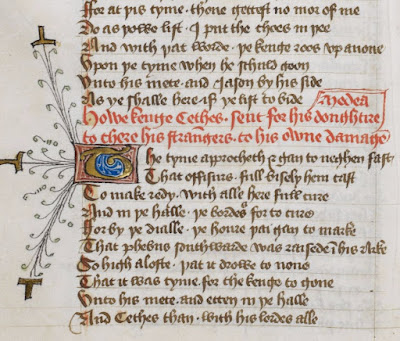 For at þis tyme · thone gettest no mor of me
Do as þowe list · I put the choes in þee
And with þat worde · þe kenge roos up anone
Upon þe tyme when he schuld goon
Unto his mete · and Jason by his side
As ye shalle here · if ye list to bide
Medea
Howe kenge Cethes · sent for his doughtire
to chere his strangers · to his owne damage
The tyme approcheth & gan to neghen fast
That officurs · full bisely hem cast
To make redy · with alle here full cure
And in þe halle · þe bordes for to cure
For by þe dialle · þe houre þai gan to marke
That phebus southwarde · was raised ī his arke
So high alofte · þat it drowe to none
That it was tyme · for the kenge to gone
Unto his mete · and etten in þe halle
And Cethes than · with his lordes alle